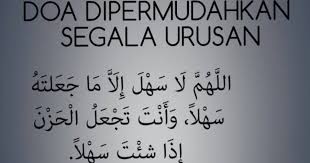 DOA DIPERMUDAHKAN
SEGALA URUSAN
اللَّهُمَّ لَا سَهْلَ إِلاَّ مَا جَعَلتَهُ
سَهْلاً، وَأَنْتَ تَجْعَلُ الْحَزْنَ
إِذَا شِئْتَ سَهْلاً.